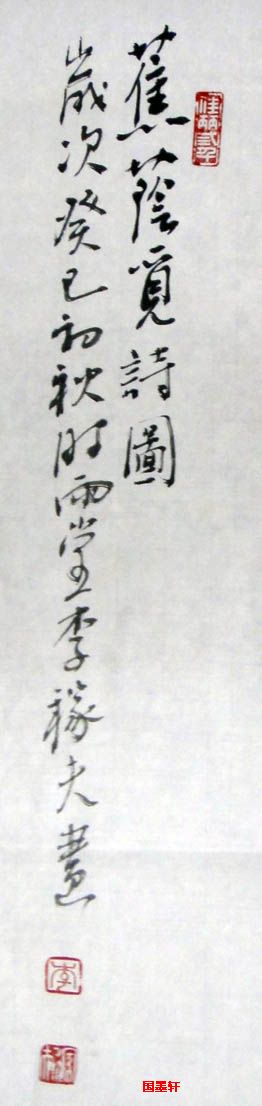 蕉蔭覓詩圖
歲次癸巳初秋时雨堂李稼夫畫
李
国墨轩